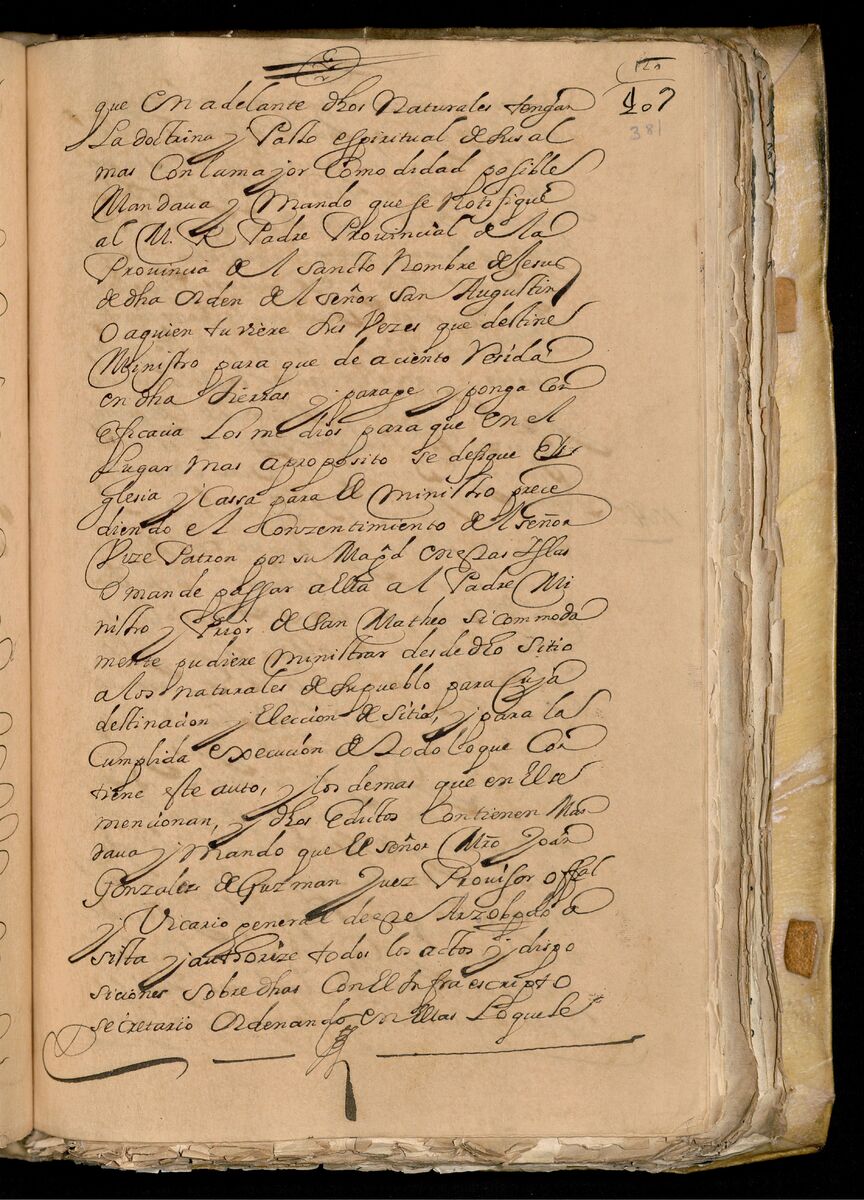 107
381
que en adelante dhos Naturales tengan
La doctrina y Pasto espiritual de sus al
mas Con la mayor Comodidad posible
Mandava y Mando que se Notifique
al M. R. Padre Provincial de la
Provincia de el Sancto Nombre de Jesus
de dha Orden de el señor San Augustin
O a quien tuviere sus Vezes que destine
Ministro para que de aciento Resida
en dha tierras y ponga con
eficacia Los medios para que en el
Lugar mas aproposito se
yglesia y Cassa para El Ministro prece
diendo el Conzentimiento de el señor
Vize Patron por su Magd en estas Yslas
O mande passar a ella al Padre Mi
nistro y Prior de San Matheo si commoda
mente pudiere ministrar desde dho sitio
a los naturales de su pueblo para Cuya
destinacion y Eleccion de sitio, y para la
Cumplida execucion de todo lo que Con
tiene este auto, y los demas que en El se
mencionan, y dhos Edictos Contienen Man
dava y Mando que El señor Mro Joan
Gonzales de Guzman Juez Provisor offal
y Vicario general de este Arzobpdo a
sista y authorize todos los actos y dispo
siciones sobre dhas Con El Infraescripto
secretario Ordenando en ellas Lo que se